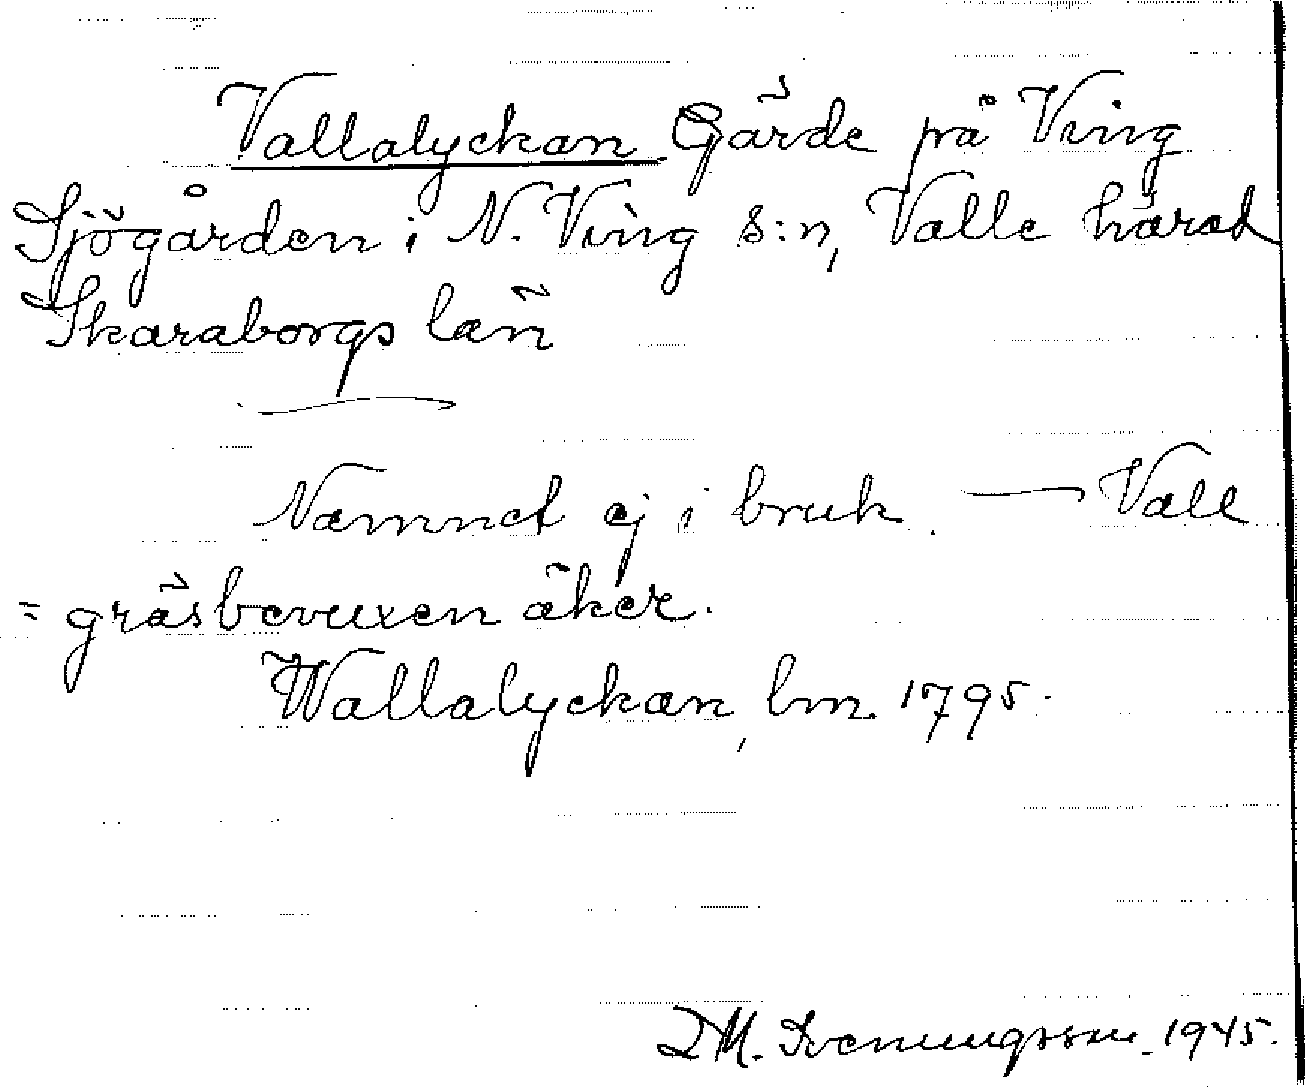 Vallalyckan Gärde på Ving
Sjögården i N. Ving s:n, Valle härad
Skaraborgs län
Namnet ej i bruk. — Vall
= gräsbevuxen åker.
Wallalyckan, lm. 1795.
M. Svenungsson 1945.